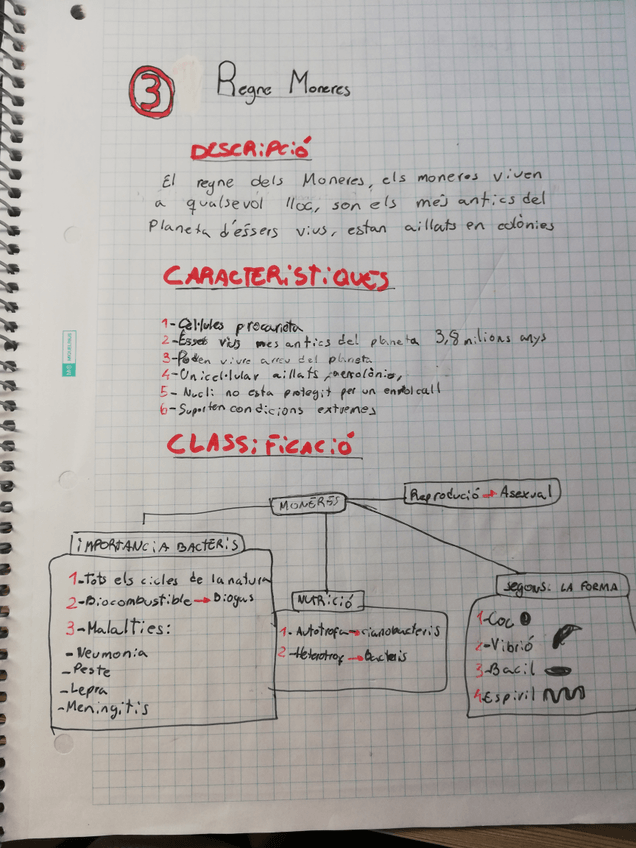 3
Regne Moneres
DESCRIPCIÓ
El regne dels Moneres, els moneres viven
a qualsevol lloc, son els més antics del
Planeta d'éssers vius, estan aillats en colònies
CARACTERISTIQUES
1-Cèl·lules procariota
2-Esser vius mes antics del planeta 3,8 milions anys
3-Poden viure arreu del planeta
4-Unicel·lular aillats,
5-Nucli no esta protegit per un
6-Suporten condicions extremes
CLASSiFICACIÓ
MONERES
Reprodució → Asexual
IMPORTANCIA BACTERIS
1-Tots els cicles de la natura
2-Biocombustible → Biogas
3-Malalties:
-Neumonia
-Peste
-Lepra
-Meningitis
NUTRICIÓ
1-Autòtrofa → cianobacteris
2-Heterotrof → Bacteris
segons: LA FORMA
1-Coc
2-Vibrió
3-Bacil
4-Espiril